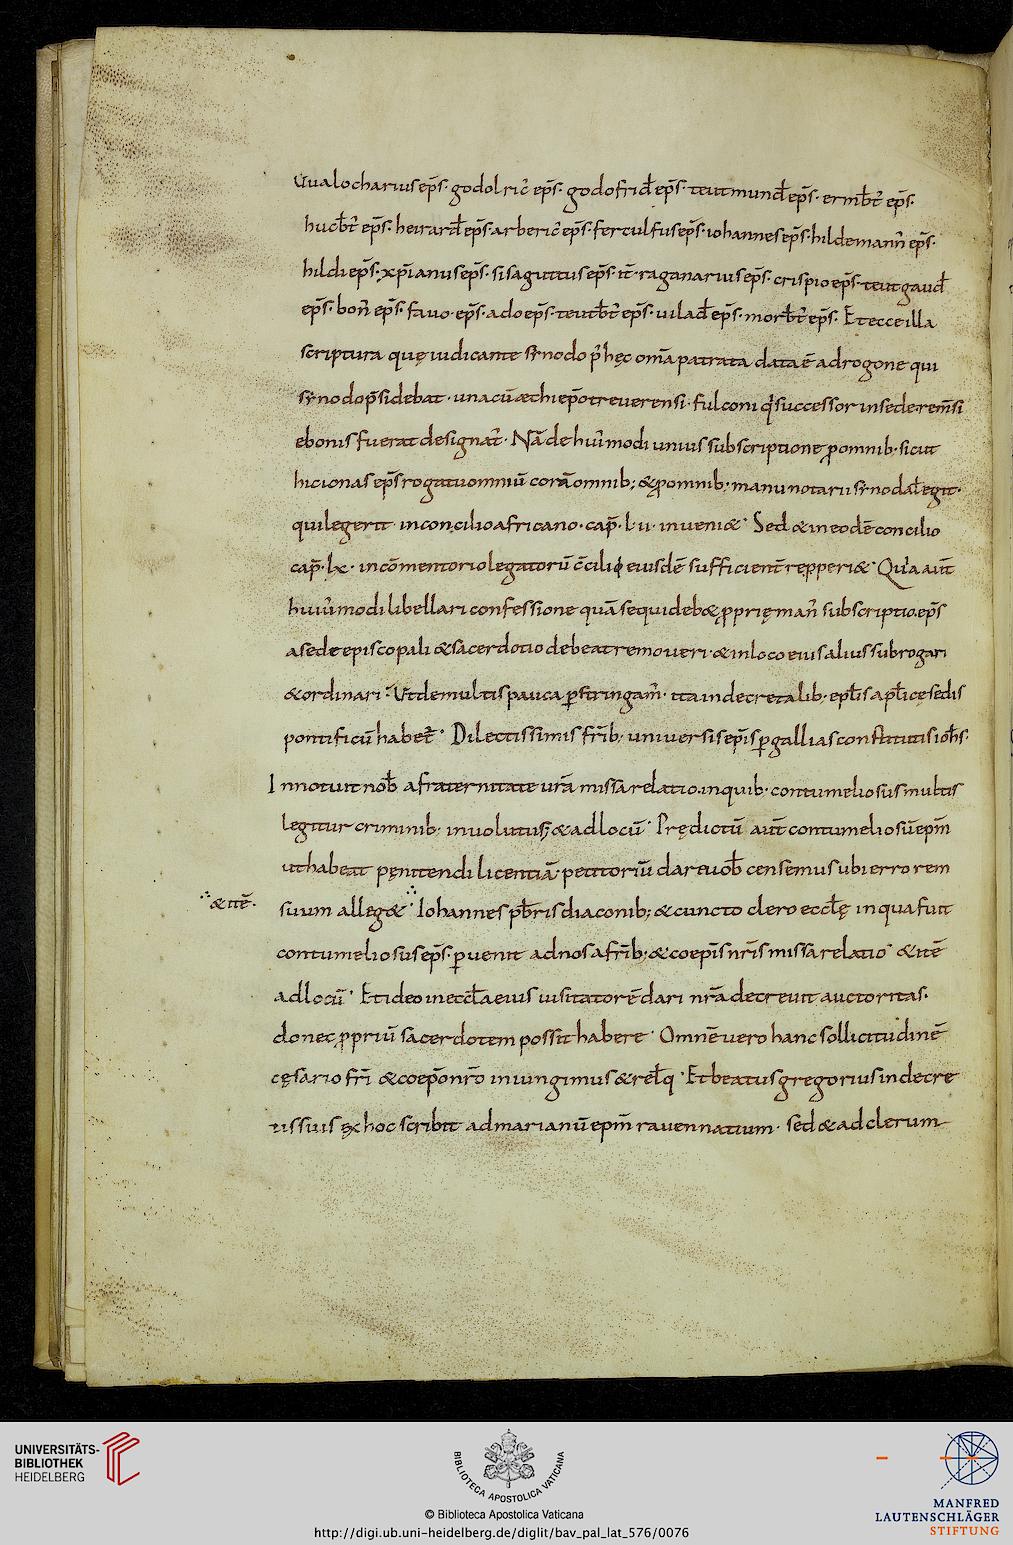 Uualocharius ep̄s· godolric̄ ep̄s· godofrid̄ ep̄s· teutmund̄ ep̄s· ermb̄t ep̄s·
hucb̄t ep̄s· heirard̄ ep̄s· arberic̄ ep̄s· ferculfus ep̄s· iohannes ep̄s· hildemann̄ ep̄s·
hildi ep̄s· xp̄ianus ep̄s· sisaguttus ep̄s· it̄· raganarius ep̄s· crispio ep̄s· teutgaud̄
ep̄s· bon̄ ep̄s· favo· ep̄s· ado ep̄s· teutb̄t ep̄s· uilad̄ ep̄s· morb̄t ep̄s· Et ecce illa
scriptura quę iudicante synodo p̄ hęc om̄a patrata data ē a drogone qui
synodo p̄sidebat· una cū æthi ep̄o treverensi· fulconi q̄ successor in sede rem̄si
ebonis fuerat designat̄· Nā de hui᾽modi unius subscriptione ꝓ omnib· sicut
hic ionas ep̄s rogatu omniū corā omnib; & ꝓ omnib; manu notarii synodal̄ egit·
qui legerit in concilio africano· cap̄· l·ii· inveni&· Sed & in eodē concilio
cap̄· lx· in cōmentorio legatorū c̄cilii eiusdē sufficient̄ repperi&· Quia aut̄
huius᾽modi libellari confessione quā sequi deb& ꝓprię man̄ subscriptio· ep̄s
a sede episcopali & sacerdotio debeat removeri· & in loco eius alius subrogari
& ordinari· Ut de multis pauca ꝑstringam᾽· ita in decretalib; epl̄is apl̄icę sedis
pontificū habet̄· Dilectissimis fr̄ib; universis ep̄is ꝑ gallias constitutis ioh̄s·
Innotuit nob̄ a fraternitate ur̄a missa relatio· in quib· contumeliosus multis
legitur criminib; involutus; & ad locū· Prędictū aut̄ contumeliosū epm̄
ut habeat pęnitendi licentiā· petitoriū dare uob̄ censemus ubi errorem
∴ & itē·
suum alleg&·∴ Iohannes pb̄ris diaconib; & cuncto clero eccl̄ę in qua fuit
contumeliosus ep̄s· ꝑvenit ad nos a fr̄ib; & coep̄is nr̄is missa relatio· & itē
ad locū· Et ideo in eccl̄a eius uisitatorē dari nr̄a decrevit auctoritas·
donec ꝓpriū sacerdotem possit habere· Omnē vero hanc sollicitudinē
cęsario fr̄i & coep̄o nr̄o iniungimus & rel̄q· Et beatus gregorius in decre
tis suis ex hoc scribit ad marianū epm̄ ravennatium· sed & ad clerum
UNIVERSITÄTS-
BIBLIOTHEK
HEIDELBERG
BIBLIOTECA APOSTOLICA VATICANA
© Biblioteca Apostolica Vaticana
http://digi.ub.uni-heidelberg.de/diglit/bav_pal_lat_576/0076
MANFRED
LAUTENSCHLÄGER
STIFTUNG